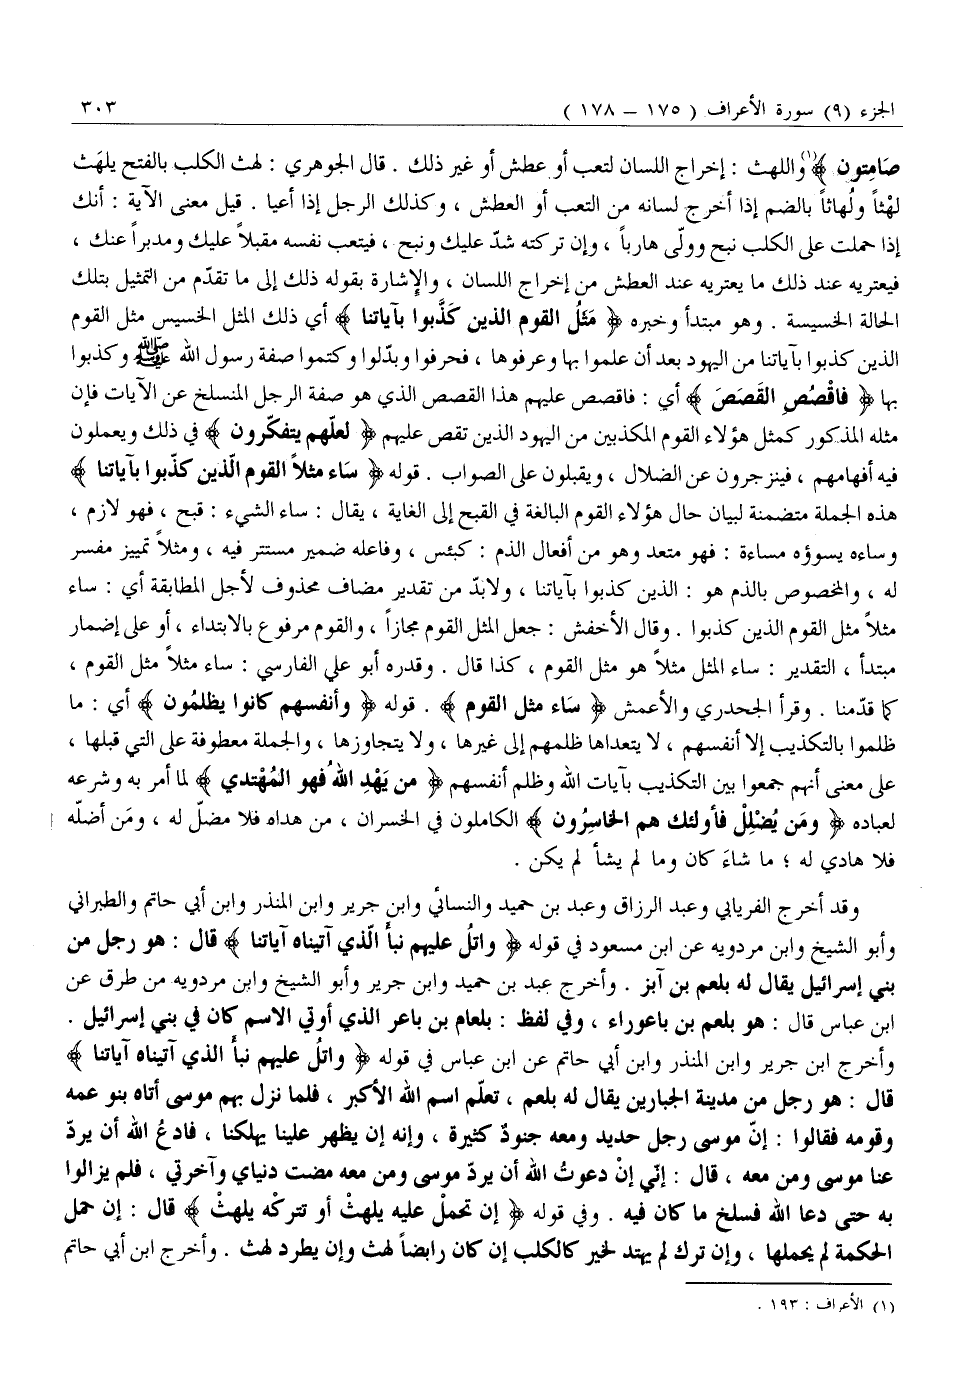 الجزء (٩) سورة الأعراف ( ١٧٥ – ١٧٨ ) ٣٠٣
صَامِتون ﴾(١) واللهث : إخراج اللسان لتعب أو عطش أو غير ذلك . قال الجوهري : لهث الكلب بالفتح يلهَث
لهْثاً ولُهاثاً بالضم إذا أخرج لسانه من التعب أو العطش ، وكذلك الرجل إذا أعيا . قيل معنى الآية : أنك
إذا حملت على الكلب نبح وولّى هارباً ، وإن تركته شدّ عليك ونبح ، فيتعب نفسه مقبلاً عليك ومدبراً عنك ،
فيعتريه عند ذلك ما يعتريه عند العطش من إخراج اللسان ، والإشارة بقوله ذلك إلى ما تقدّم من التمثيل بتلك
الحالة الخسيسة . وهو مبتدأ وخبره ﴿ مَثَلُ القوم الذين كَذَّبوا بآياتنا ﴾ أي ذلك المثل الخسيس مثل القوم
الذين كذبوا بآياتنا من اليهود بعد أن علموا بها وعرفوها ، فحرفوا وبدّلوا وكتموا صفة رسول الله ﷺ وكذبوا
بها ﴿ فاقْصُصِ القَصَصَ ﴾ أي : فاقصص عليهم هذا القصص الذي هو صفة الرجل المنسلخ عن الآيات فإن
مثله المذكور كمثل هؤلاء القوم المكذبين من اليهود الذين تقص عليهم ﴿ لعلّهم يتفكّرون ﴾ في ذلك ويعملون
فيه أفهامهم ، فينزجرون عن الضلال ، ويقبلون على الصواب . قوله ﴿ سَاء مثلاً القوم الّذين كذّبوا بآياتنا ﴾
هذه الجملة متضمنة لبيان حال هؤلاء القوم البالغة في القبح إلى الغاية ، يقال : ساء الشيء : قبح ، فهو لازم ،
وساءه يسوؤه مساءة : فهو متعد وهو من أفعال الذم : كبئس ، وفاعله ضمير مستتر فيه ، ومثلاً تمييز مفسر
له ، والمخصوص بالذم هو : الذين كذبوا بآياتنا ، ولابدّ من تقدير مضاف محذوف لأجل المطابقة أي : ساء
مثلاً مثل القوم الذين كذبوا . وقال الأخفش : جعل المثل القوم مجازاً ، والقوم مرفوع بالابتداء ، أو على إضمار
مبتدأ ، التقدير : ساء المثل مثلاً هو مثل القوم ، كذا قال . وقدره أبو علي الفارسي : ساء مثلاً مثل القوم ،
كما قدّمنا . وقرأ الجحدري والأعمش ﴿ سَاء مثل القوم ﴾ . قوله ﴿ وأنفسهم كانوا يظلمُون ﴾ أي : ما
ظلموا بالتكذيب إلا أنفسهم ، لا يتعداها ظلمهم إلى غيرها ، ولا يتجاوزها ، والجملة معطوفة على التي قبلها ،
على معنى أنهم جمعوا بين التكذيب بآيات الله وظلم أنفسهم ﴿ من يَهْدِ اللهُ فهو المُهْتدي ﴾ لما أمر به وشرعه
لعباده ﴿ ومَن يُضْلِلْ فأولئك هم الخاسِرُون ﴾ الكاملون في الخسران ، من هداه فلا مضلّ له ، ومَن أضلّه
فلا هادي له ؛ ما شاءَ كان وما لم يشأ لم يكن .
وقد أخرج الفريابي وعبد الرزاق وعبد بن حميد والنسائي وابن جرير وابن المنذر وابن أبي حاتم والطبراني
وأبو الشيخ وابن مردويه عن ابن مسعود في قوله ﴿ واتلُ عليهم نبأ الّذي آتيناه آياتنا ﴾ قال : هو رجل من
بني إسرائيل يقال له بلعم بن آبز . وأخرج عبد بن حميد وابن جرير وأبو الشيخ وابن مردويه من طرق عن
ابن عباس قال : هو بلعم بن باعوراء ، وفي لفظ : بلعام بن باعر الذي أوتي الاسم كان في بني إسرائيل .
وأخرج ابن جرير وابن المنذر وابن أبي حاتم عن ابن عباس في قوله ﴿ واتلُ عليهم نبأ الذي آتيناه آياتنا ﴾
قال : هو رجل من مدينة الجبارين يقال له بلعم ، تعلّم اسم الله الأكبر ، فلما نزل بهم موسى أتاه بنو عمه
وقومه فقالوا : إنّ موسى رجل حديد ومعه جنودٌ كثيرة ، وإنه إن يظهر علينا يهلكنا ، فادعُ الله أن يردّ
عنا موسى ومن معه ، قال : إنّي إنْ دعوتُ الله أن يردّ موسى ومن معه مضت دنياي وآخرتي ، فلم يزالوا
به حتى دعا الله فسلخ ما كان فيه . وفي قوله ﴿ إن تحملْ عليه يلهثْ أو تتركْه يلهثْ ﴾ قال : إن حمل
الحكمة لم يحملها ، وإن ترك لم يهتد لخير كالكلب إن كان رابضاً لهث وإن يطرد لهث . وأخرج ابن أبي حاتم
(١) الأعراف : ١٩٣ .